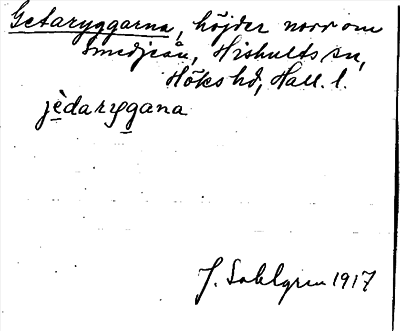 Getaryggarna, höjder norr om
Smedjeån, Hishults sn,
Höks hd, Hall. l.
jèdaryg̲ana
J. Sahlgren 1917